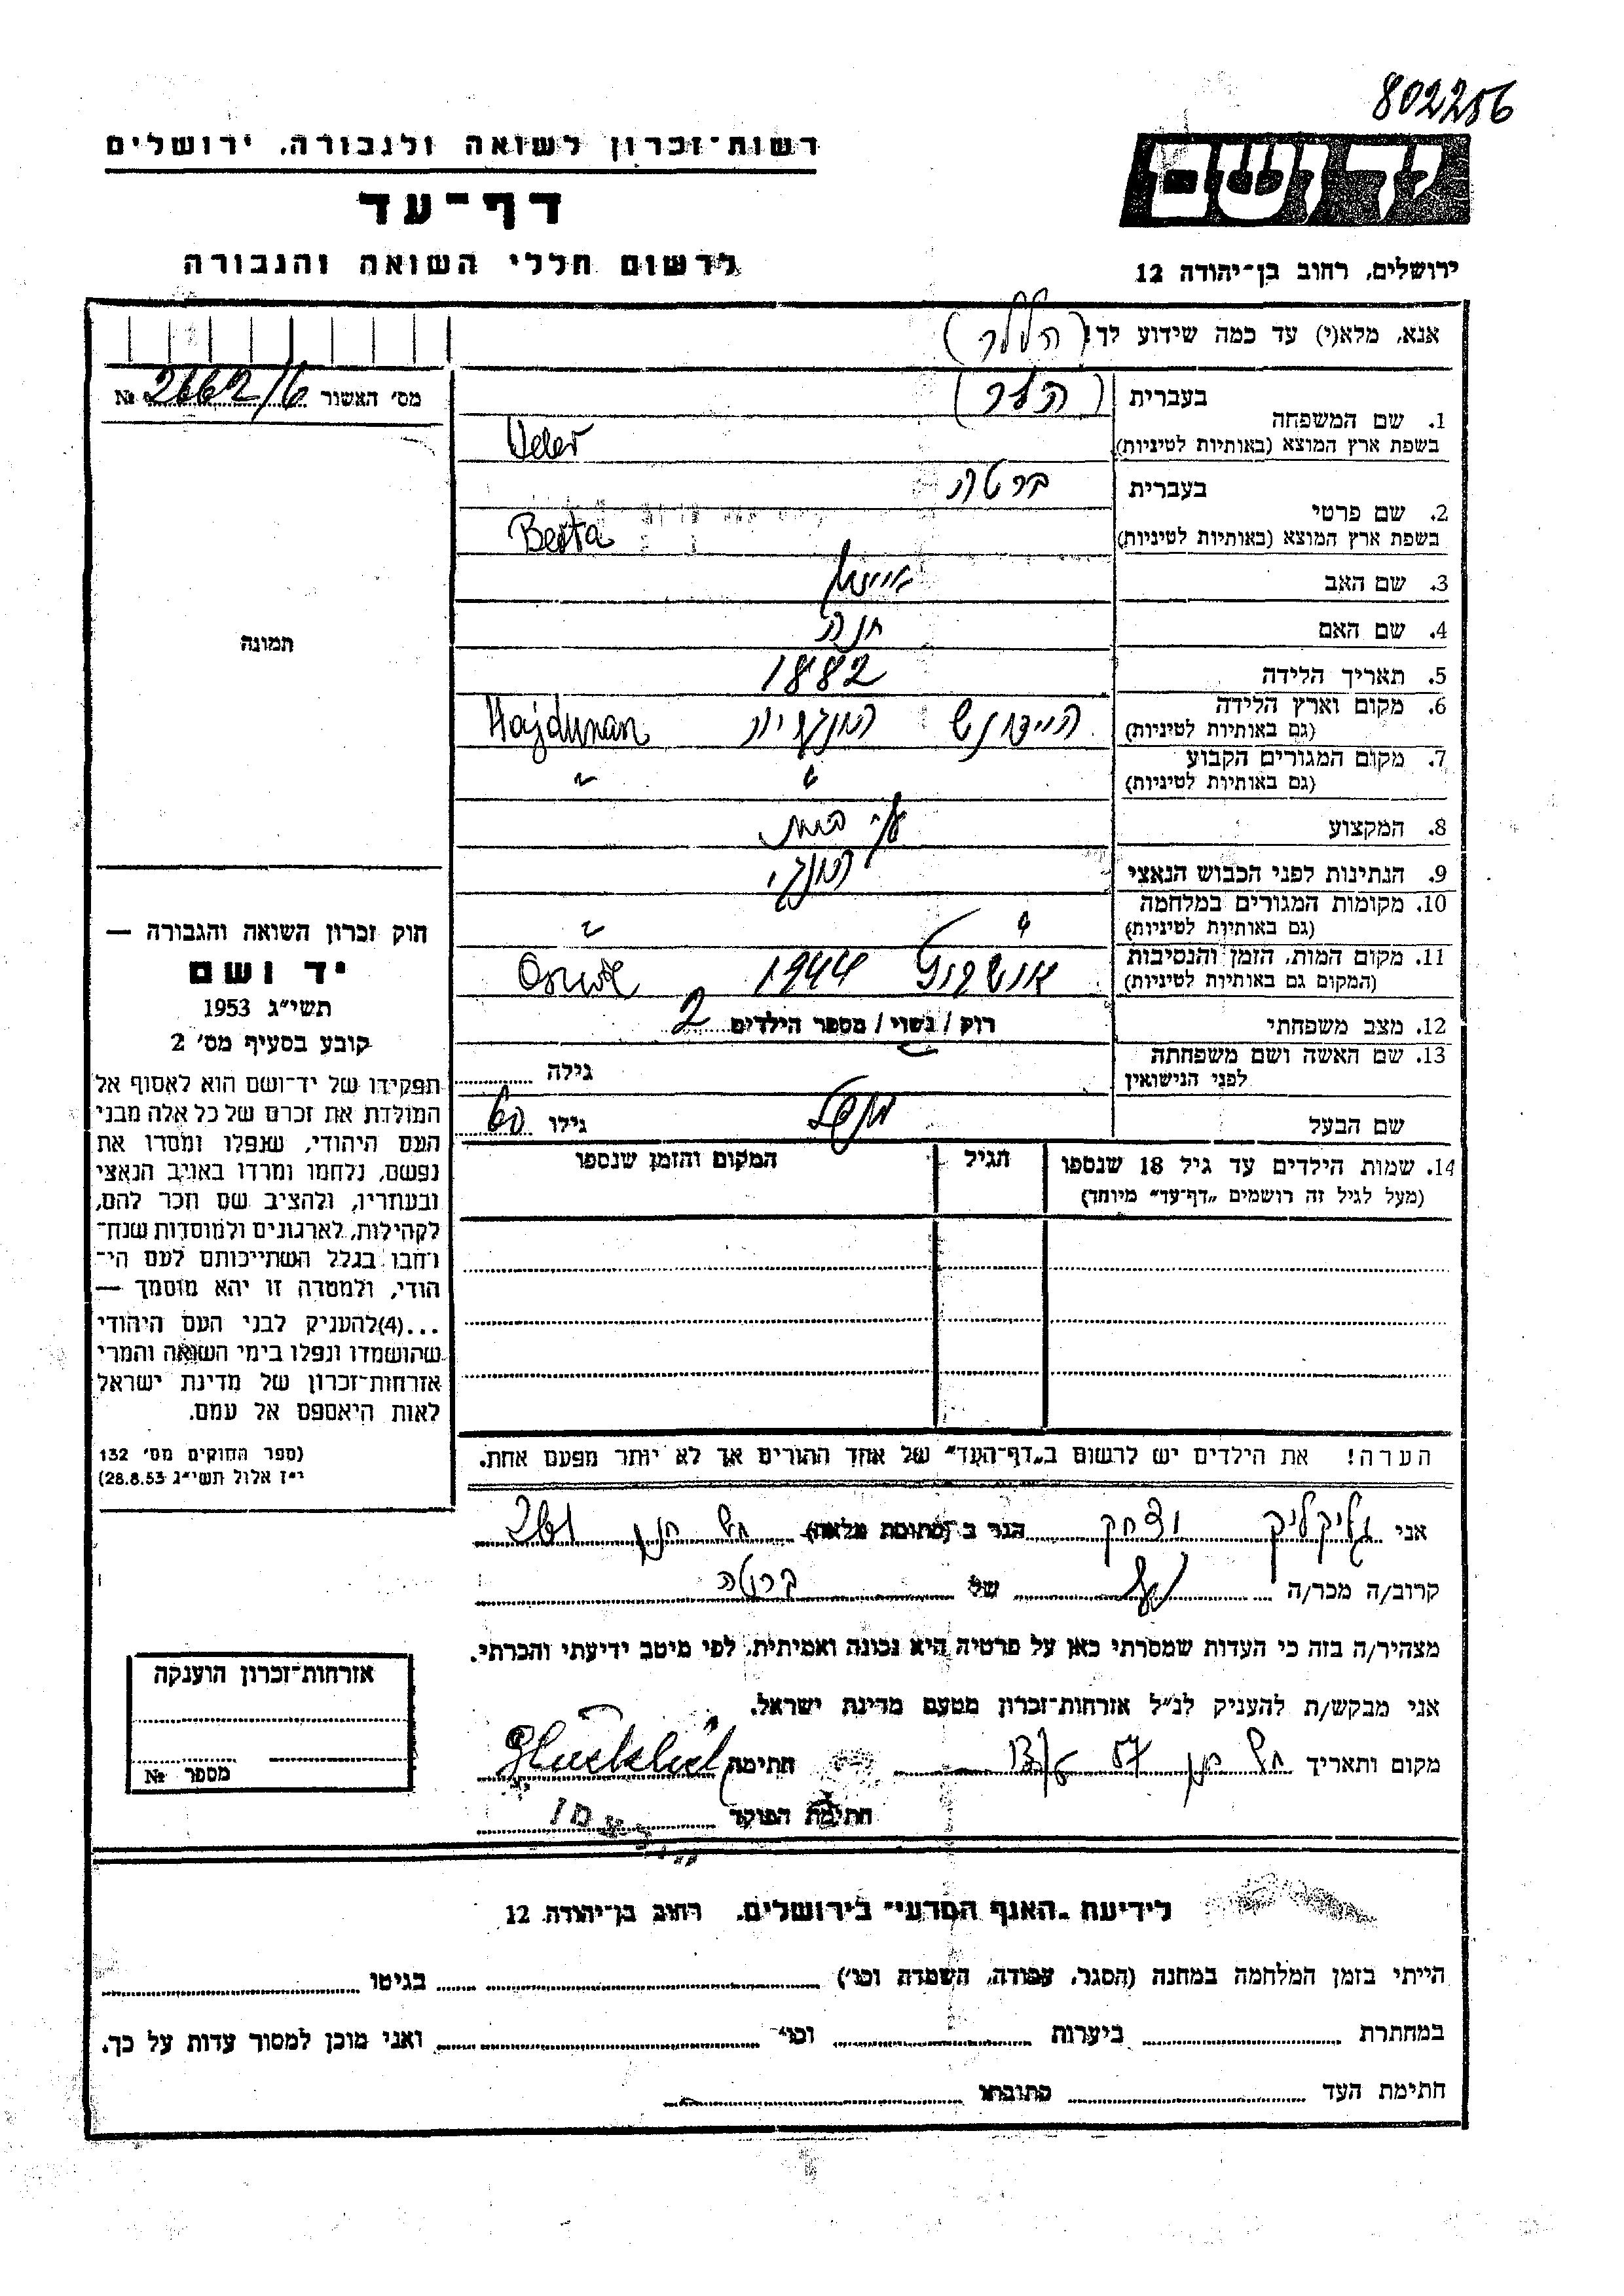 802256
רשות־זכרון לשואה ולגבורה, ירושלים
יד ושם
דף־עד
לרשום חללי השואה והגבורה
ירושלים, רחוב בן־יהודה 12
אנא, מלא(י) עד כמה שידוע לך!
מס׳ האשור № 2662/6
1. שם המשפחה בעברית
בשפת ארץ המוצא (באותיות לטיניות)
2. שם פרטי בעברית ברטה
בשפת ארץ המוצא (באותיות לטיניות) Berta
3. שם האב
4. שם האם חנה
תמונה
5. תאריך הלידה 1882
6. מקום וארץ הלידה
(גם באותיות לטיניות)
7. מקום המגורים הקבוע
(גם באותיות לטיניות) " "
8. המקצוע
9. הנתינות לפני הכבוש הנאצי
10. מקומות המגורים במלחמה
(גם באותיות לטיניות) " "
11. מקום המות, הזמן והנסיבות 1944
(המקום גם באותיות לטיניות)
12. מצב משפחתי רוק / נשוי / מספר הילדים 2
13. שם האשה ושם משפחתה
לפני הנישואין גילה
שם הבעל גילו 60
14. שמות הילדים עד גיל 18 שנספו הגיל המקום והזמן שנספו
(מעל לגיל זה רושמים „דף־עד” מיוחד)
חוק זכרון השואה והגבורה —
יד ושם
תשי״ג 1953
קובע בסעיף מס׳ 2
תפקידו של יד־ושם הוא לאסוף אל
המולדת את זכרם של כל אלה מבני
העם היהודי, שנפלו ומסרו את
נפשם, נלחמו ומרדו באויב הנאצי
ובעוזריו, ולהציב שם וזכר להם,
לקהילות, לארגונים ולמוסדות שנח־
רבו בגלל השתייכותם לעם הי־
הודי, ולמטרה זו יהא מוסמך —
...(4)להעניק לבני העם היהודי
שהושמדו ונפלו בימי השואה והמרי
אזרחות־זכרון של מדינת ישראל
לאות היאספם אל עמם.
(ספר החוקים מס׳ 132
י״ז אלול תשי״ג 28.8.53)
הערה! את הילדים יש לרשום ב„דף־העד” של אחד ההורים אך לא יותר מפעם אחת.
אני גליקליק יצחק הגר ב (כתובת מלאה)
קרוב/ה מכר/ה של ברטה
מצהיר/ה בזה כי העדות שמסרתי כאן על פרטיה היא נכונה ואמיתית, לפי מיטב ידיעתי והכרתי.
אני מבקש/ת להעניק לנ״ל אזרחות־זכרון מטעם מדינת ישראל.
מקום ותאריך חתימה
חתימת הפוקד
אזרחות־זכרון הוענקה
מספר №
לידיעת „האגף המדעי” בירושלים, רחוב בן־יהודה 12
הייתי בזמן המלחמה במחנה (הסגר, עבודה, השמדה וכו׳) בגיטו
במחתרת ביערות וכו׳ ואני מוכן למסור עדות על כך.
חתימת העד כתובתו